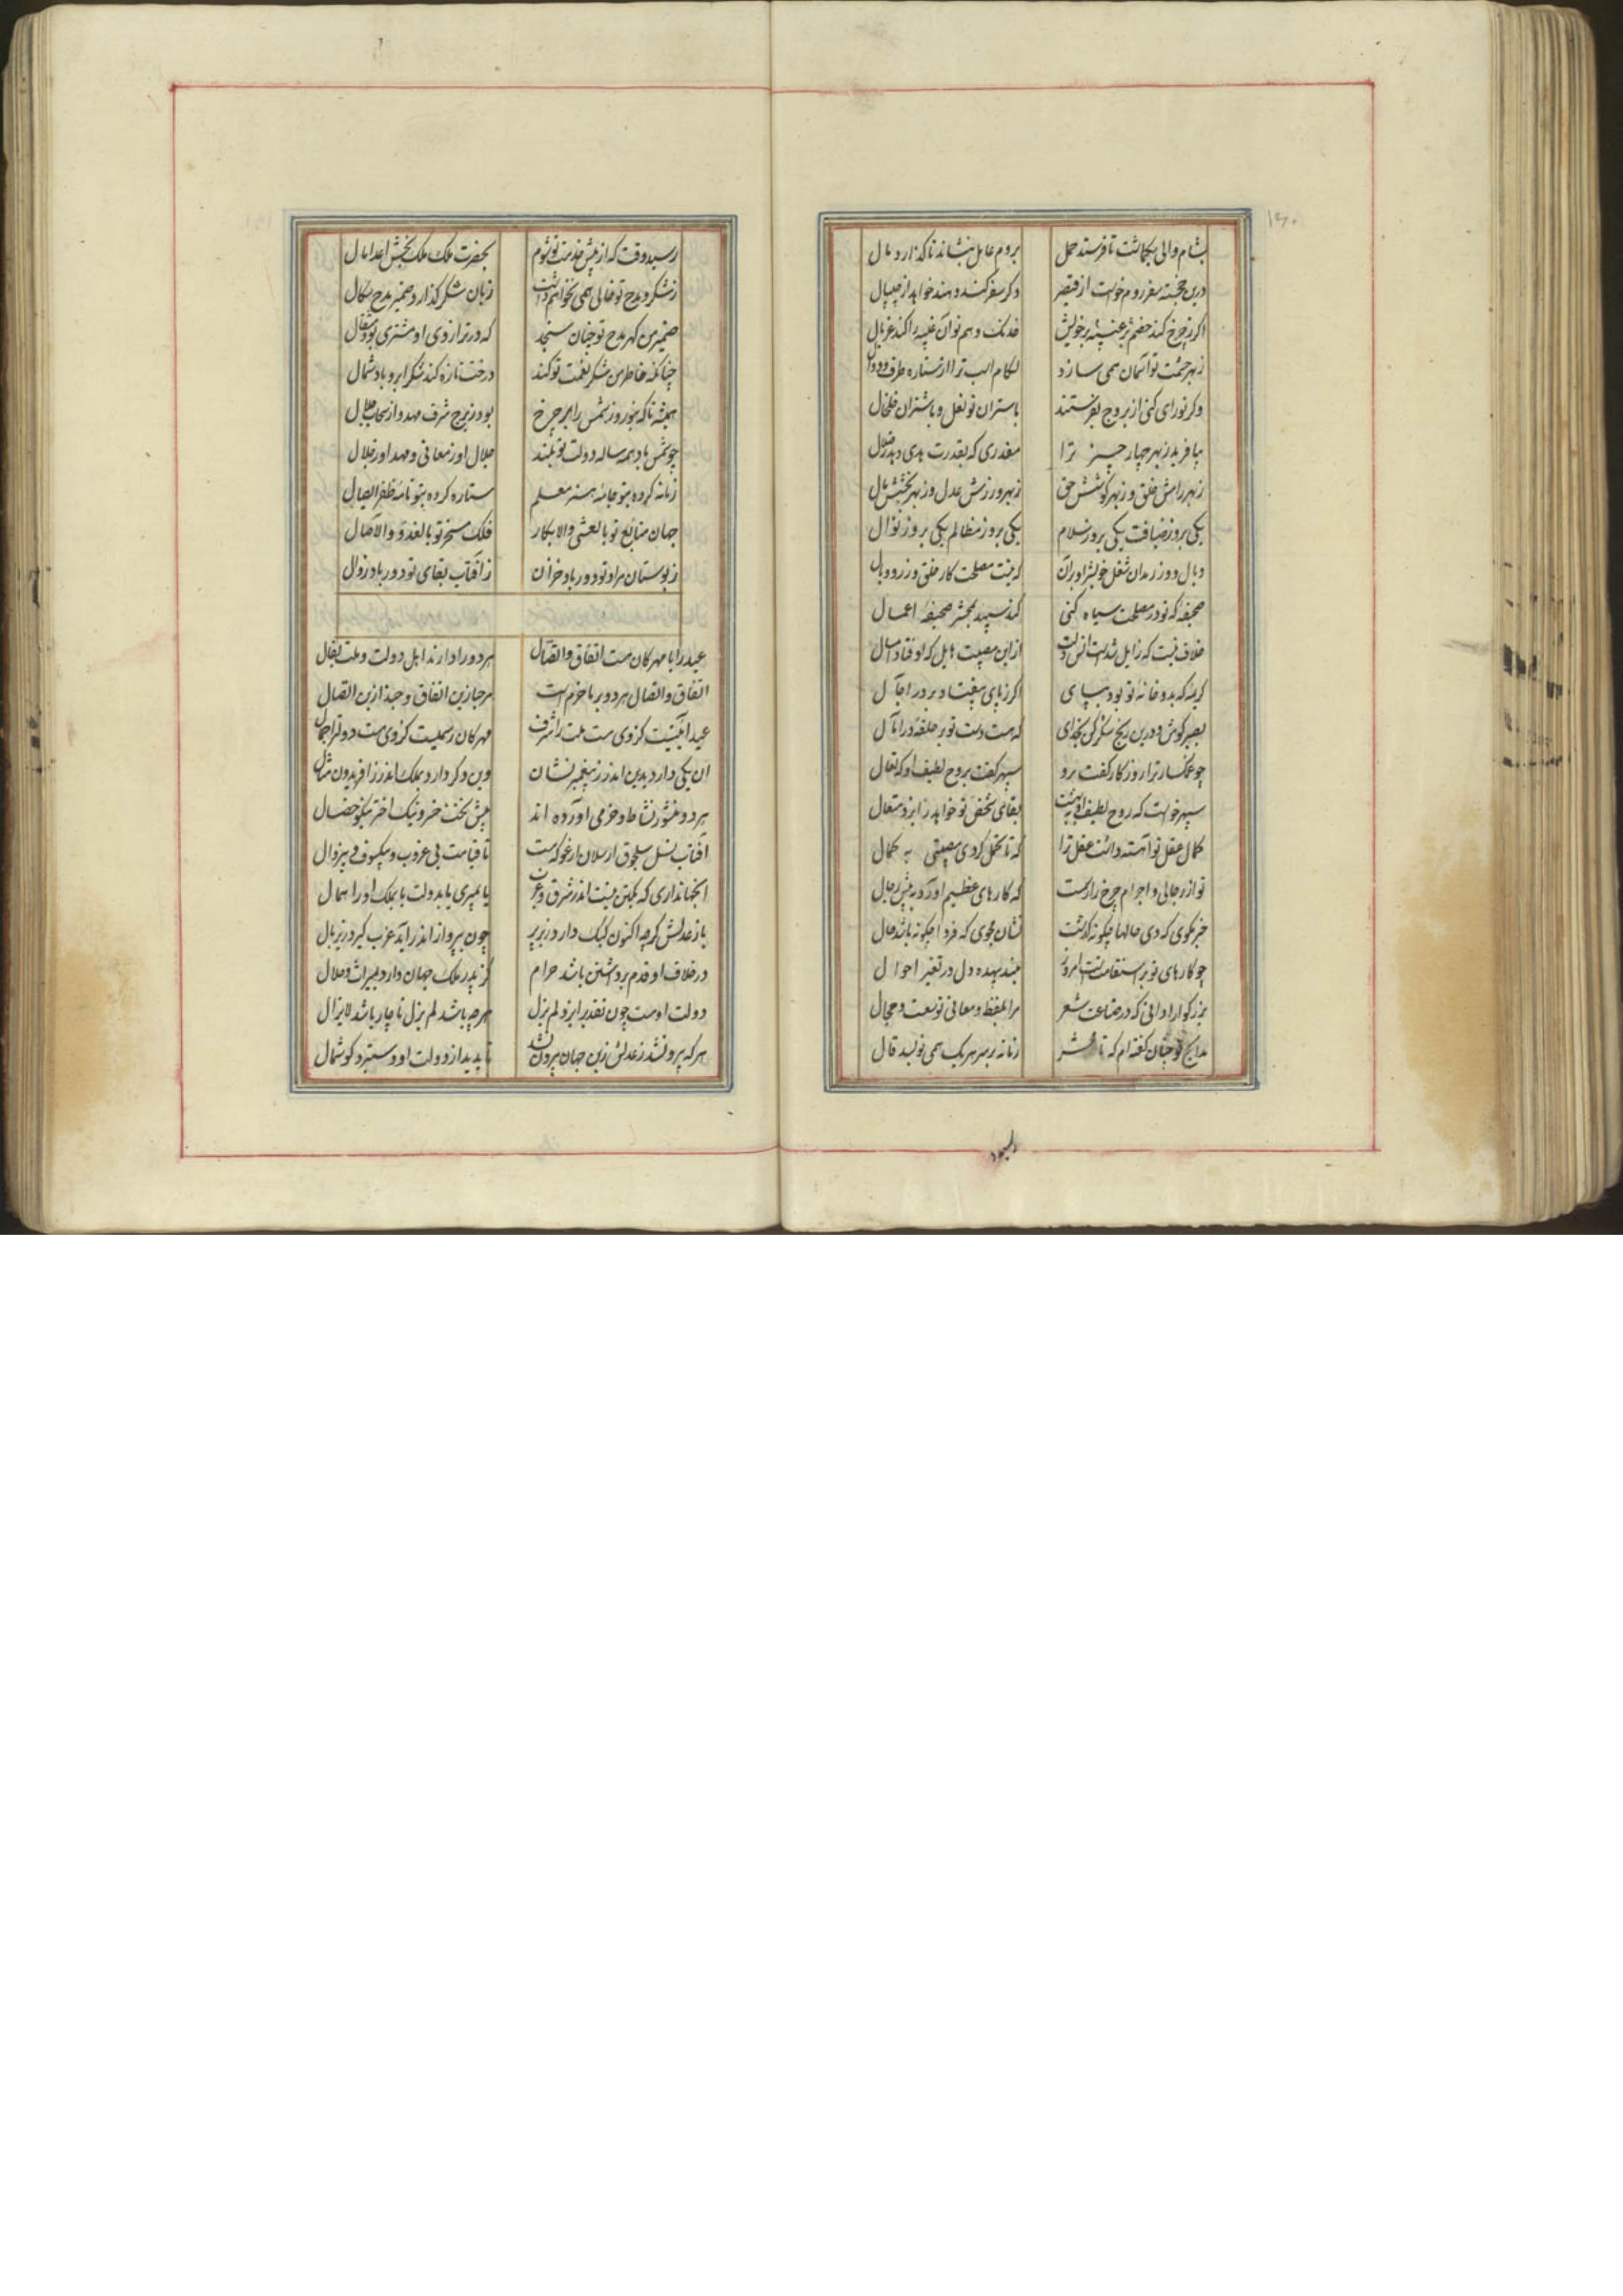 بشام والی بگماشت تا فرستد حمل بروم عامل بنشاند تا گذارد مال
درین خجسته سفر روم خواست از قیصر وگر سفر کند و هند خواهد از جیپال
اگر ز چرخ کند خصم تو غیبه بر خویش خدنگ وهم تو آن غیبه را کند غربال
ز بهر حشمت تو آسمان همی سازد لگام اسب ترا از ستاره طرف و دوال
وگر تو رای کنی از بروج بفرستند باستران تو نعل و باشتران خلخال
بیافرید ز بهر چهار چیز ترا مقدری که بقدرت بدی دهد افضال
ز بهر رامش خلق و ز بهر کوشش حق ز بهر ورزش عدل و ز بهر بخشش مال
یکی بروز ضیافت یکی بروز سلام یکی بروز مظالم یکی بروز نوال
وبال و وزر مدان شغل خویش را و بر آن که نیست مصلحت کار خلق وزر و وبال
صحیفه که تو در مصلحت سیاه کنی کند سپید بمحشر صحیفه اعمال
خلاف نیست که زایل شدست انس دلت ازین مصیبت هایل که اوفتاد امسال
کریمه که بدو خانه تو بود بپای اگر ز پای بیفتاد بر در آجال
بصبر کوش و درین رنج شکر کن بخدای که هست دست تو بر حلقه در آمال
چو غمگسار ترا روزگار گفت برو سپهر گفت بروح لطیف او که تعال
سپهر خواست که روح لطیف او بهشت بقای شخص تو خواهد ز ایزد متعال
کمال عقل تو آهسته داشت عقل ترا که تا تحمل کردی مصیبتی به کمال
تو از رجالی و اجرام چرخ را رسمست که کارهای عظیم آورد به پیش رجال
خبر مگوی که دی حالها چگونه گذشت نشان مجوی که فردا چگونه باشد حال
چو کارهای تو بر استقامتست امروز مبند بیهده دل در تغیر احوال
بزرگوارا دانی که در صناعت شعر مرا بلفظ و معانی توسعست و مجال
مدایح تو چنان گفته ام که تا محشر زمانه بر سر هر یک همی نویسد قال
رسید وقت که از پیش خدمت تو شوم بحضرت ملک ملک بخش اعدا مال
ز شکر و مدح تو خالی همی نخواهم داشت زبان شکر گذار و ضمیر مدح سگال
ضمیر من گهر مدح تو چنان سنجد که در ترازوی او مشتری بود مثقال
چنانکه خاطر من شکر نعمت تو کند درخت تازه کند شکر ابر و باد شمال
همیشه تا که بنوروز شمس را بر چرخ بود ز برج شرف مهد و از سحاب جلال
چو شمس باد همه ساله دولت تو بلند جلال او ز معانی و مهد او ز جلال
زمانه کرده بتو جامه هنر معلم ستاره کرده بتو نامه ظفر ایصال
جهان متابع تو بالعشی والابکار فلک مسخر تو بالغدو والآصال
ز بوستان مراد تو دور باد خزان ز آفتاب بقای تو دور باد زوال
عید را با مهرگان هست اتفاق و اتصال هر دو را دارند اهل دولت و ملت بفال
اتفاق و اتصال هر دو بر ما خرم است مرحبا زین اتفاق و حبذا زین اتصال
عید آیینیست کز وی هست ملت را شرف مهرگان رسمیست کز وی هست دولت را جمال
آن یکی دارد بدین اندر ز پیغمبر نشان وین دگر دارد بملک اندر ز افریدون مثال
هر دو منشور نشاط و خرمی آورده اند پیش تخت خسرو نیک اختر نیکو خصال
آفتاب نسل سلجوق ارسلان ارغو که هست تا قیامت بی غروب و بی کسوف و بی زوال
آنجهانداری که یکتن نیست اندر شرق و غرب یا بمیری یا بدولت یا بملک او را همال
باز عدلش گر چه اکنون کبک دارد زیر پر چون بپرواز اندر آید غرب گیرد زیر بال
در خلاف او قدم برداشتن باشد حرام کز پدر ملک جهان دارد بمیراث و حلال
دولت اوست چون تقدیر ایزد لم یزل هر چه باشد لم یزل ناچار باشد لایزال
هر که بیرون شد ز عدلش زین جهان بیرون شد ناپدید از دولت او دستبرد گوشمال